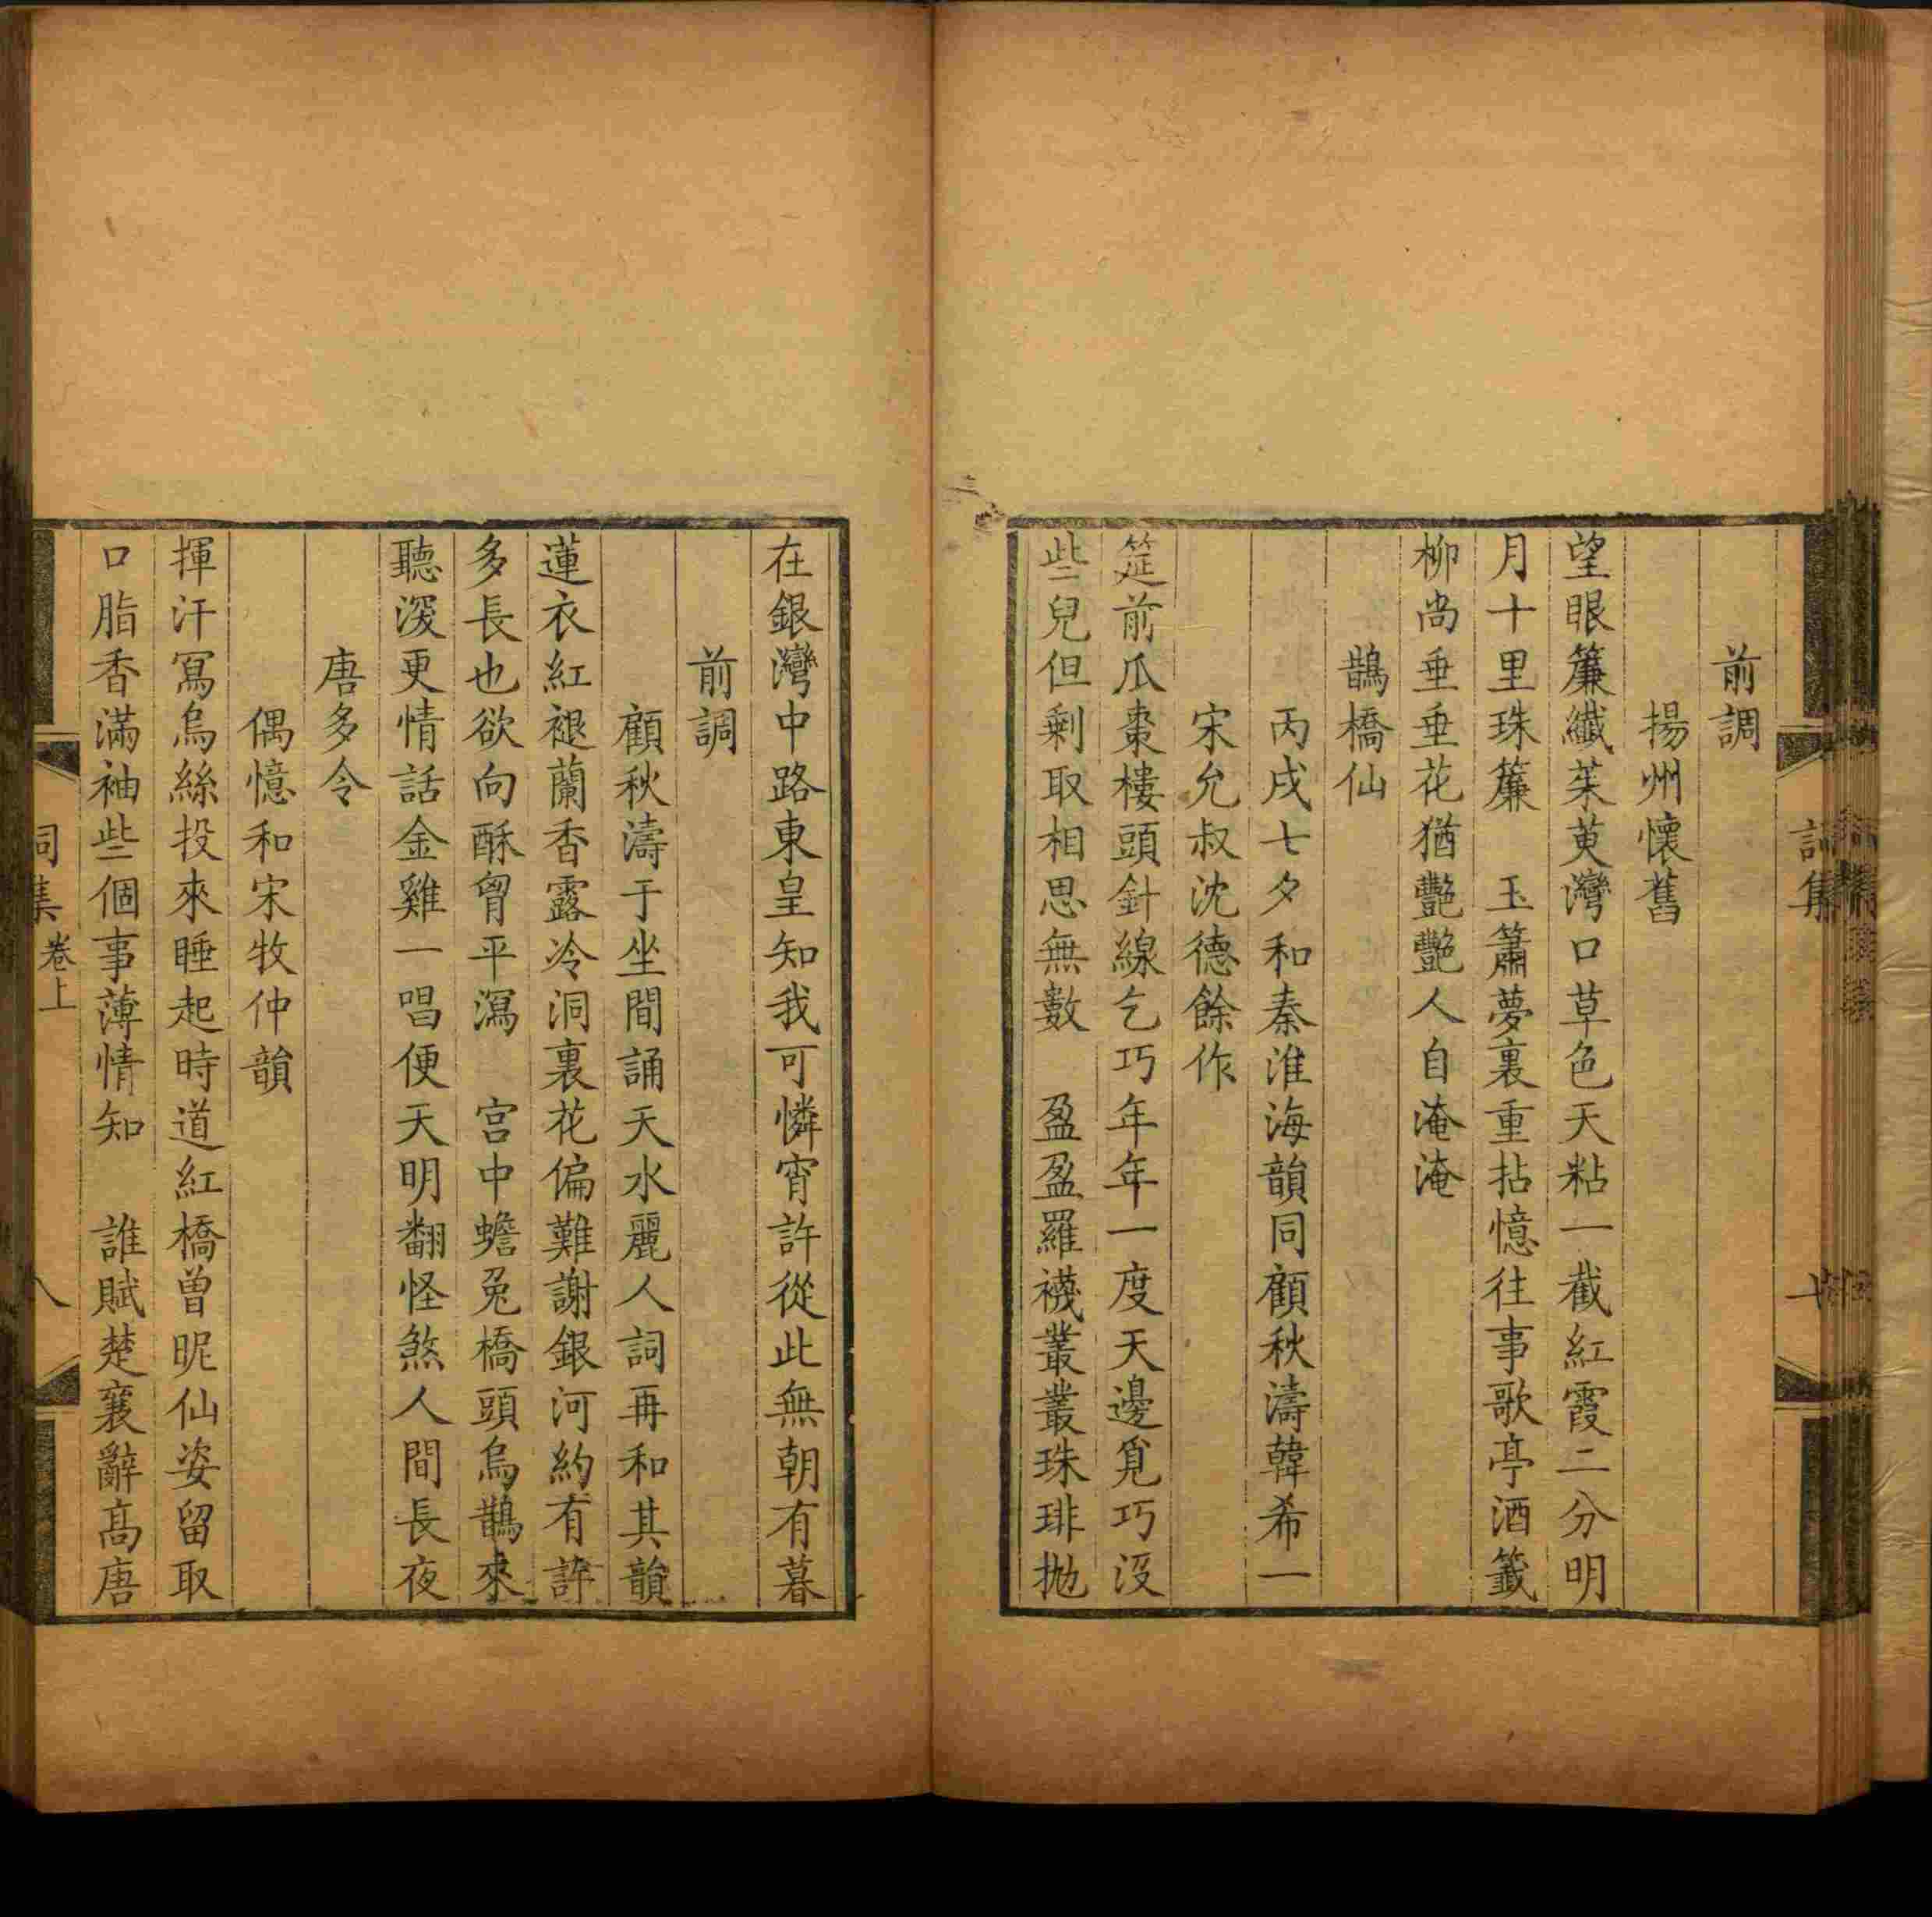 前調
揚州懷舊
望眼簾纖茱萸灣口草色天粘一截紅霞二分明
月十里珠簾　玉簫夢裏重拈憶往事歌亭酒籤
柳尚垂垂花猶艷艷人自淹淹
鵲橋仙
丙戌七夕和秦淮海韻同顧秋濤韓希一
宋允叔沈德餘作
筵前瓜棗樓頭針線乞巧年年一度天天邊覓巧沒
些兒但剩取相思無數　盈盈羅襪叢叢珠琲拋
在銀灣中路東皇知我可憐宵許從此無朝有暮
前調
顧秋濤于坐間誦天水麗人詞再和其韻
蓮衣紅褪蘭香露冷洞裏花偏難謝銀河約有許
多長也欲向酥胷平瀉　宮中蟾兔橋頭烏鵲來
聽深更情話金雞一唱便天明翻怪煞人間長夜
唐多令
偶憶和宋牧仲韻
揮汗寫烏絲投來睡起時道紅橋曾昵仙姿留取
口脂香滿袖些個事薄情知　誰賦楚襄辭高唐
詞集 卷上 八